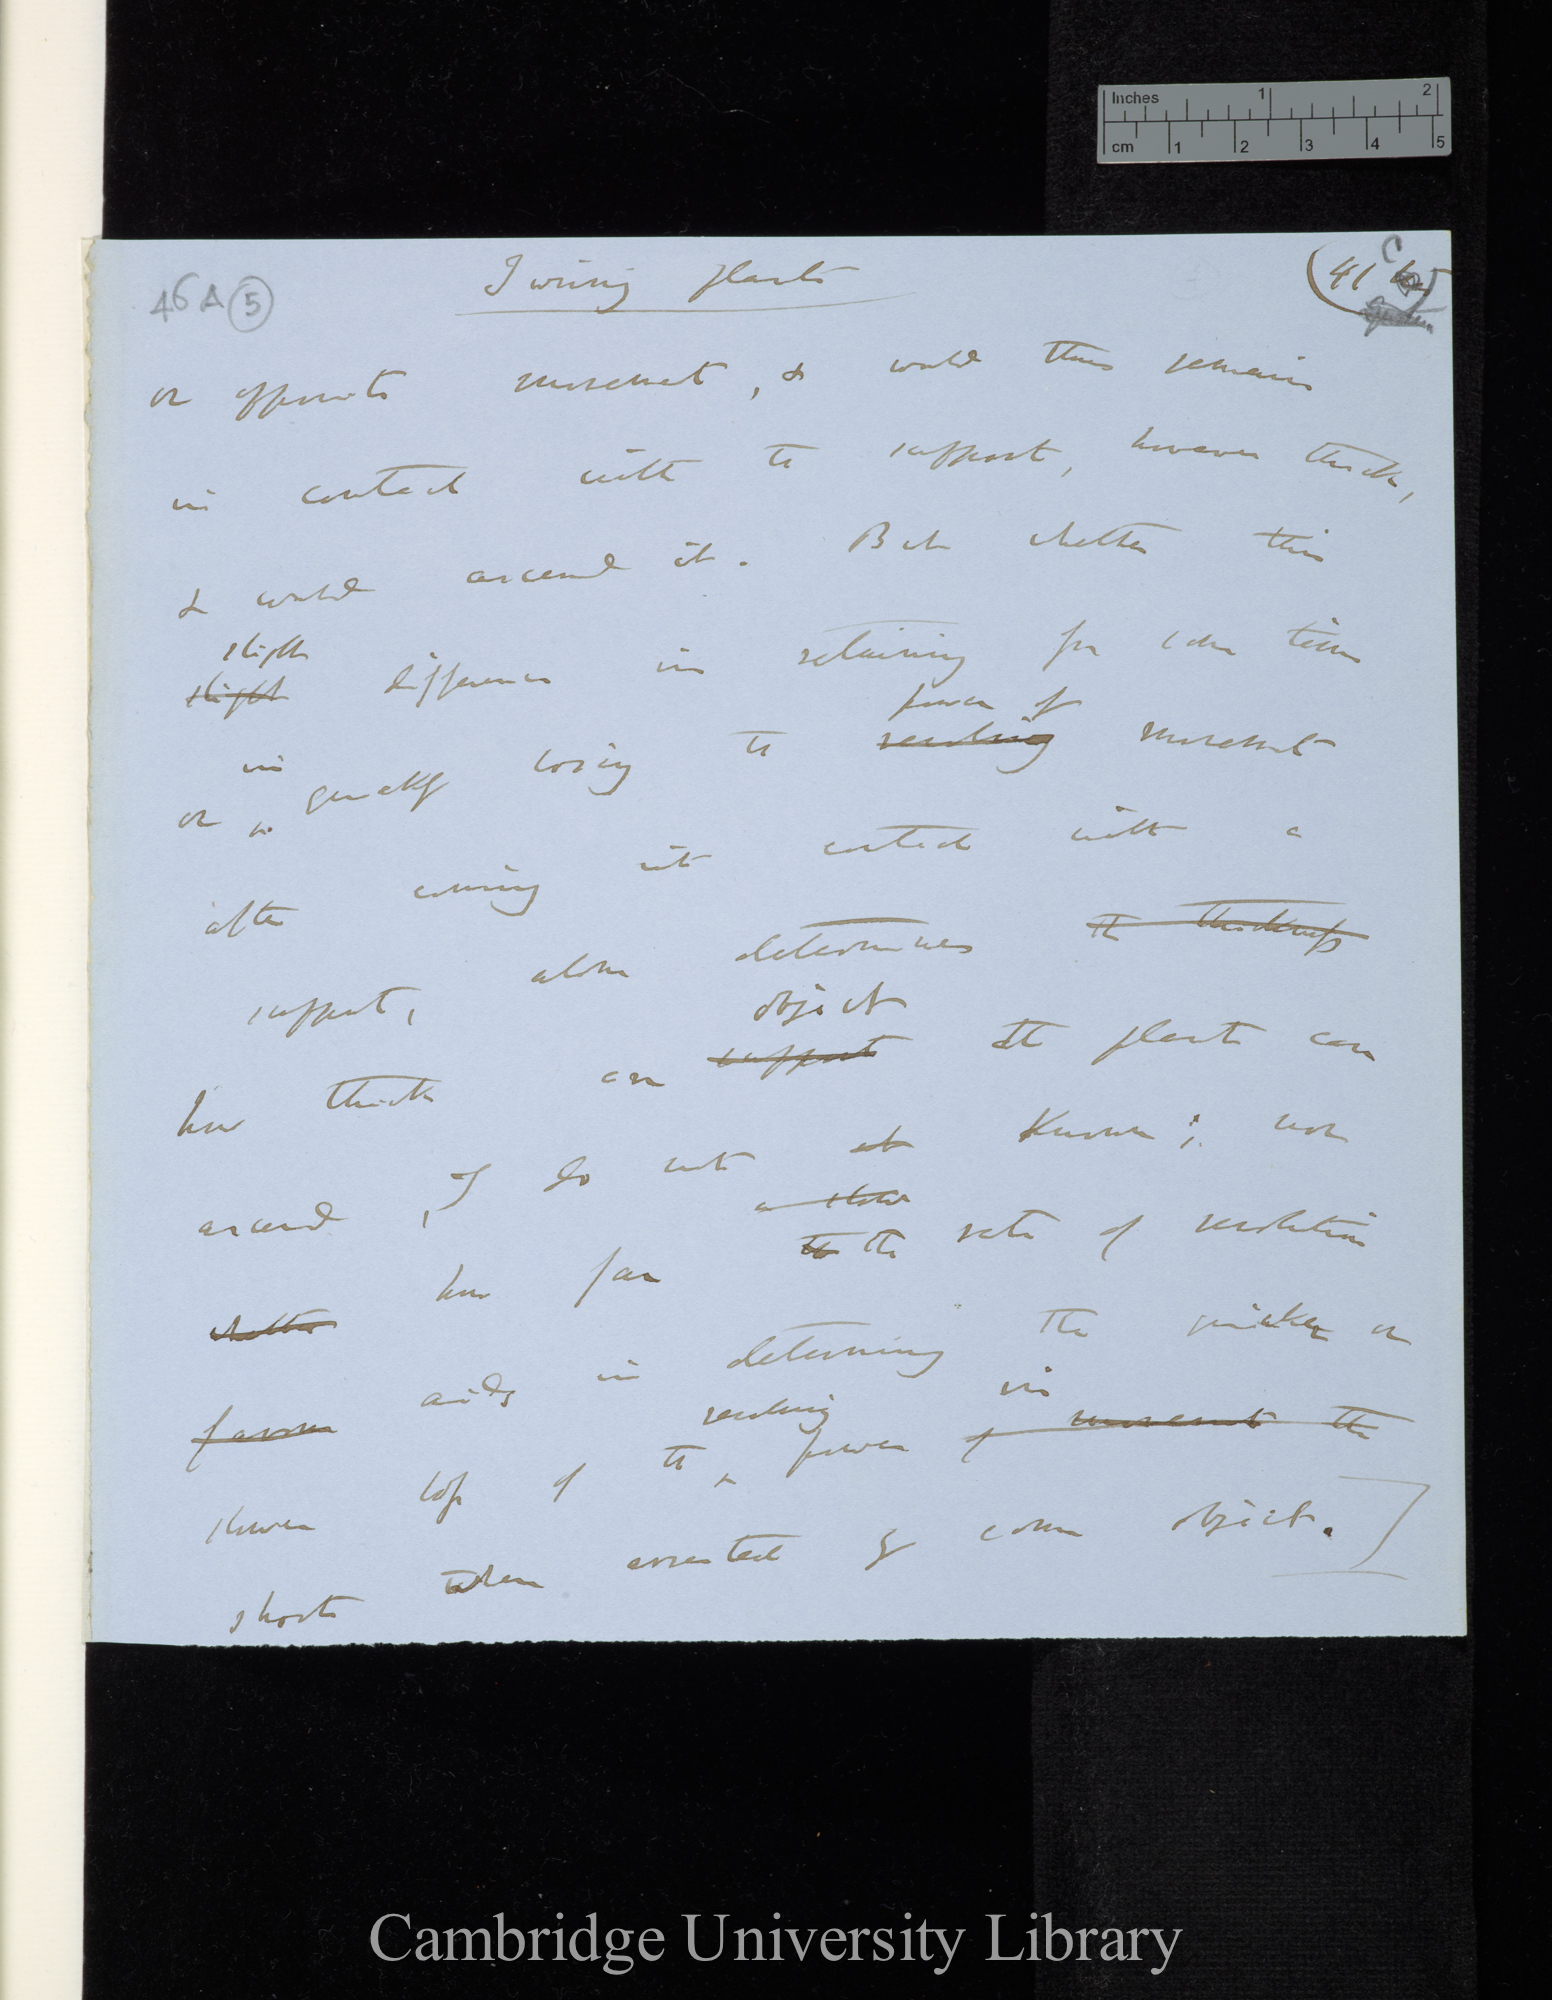 Inches 1 2
cm 1 2 3 4 5
46 A 5
Twining plants
(41 C
or opposite movement, & would thus remain
in contact with the support, however thick,
& would ascend it. But whether this
slight
slight difference in retaining for some time
power of
in
or quickly losing the revolving movement
after coming into contact with a
support, alone determines the thickness
object
how thick an support the plants can
ascend, I do not at know; nor
a slow
whether how far to the rate of revolution
favour aids in determining the quicker or
revolving in
slower loss of the power of movement the
shoots when arrested by some object.
Cambridge University Library